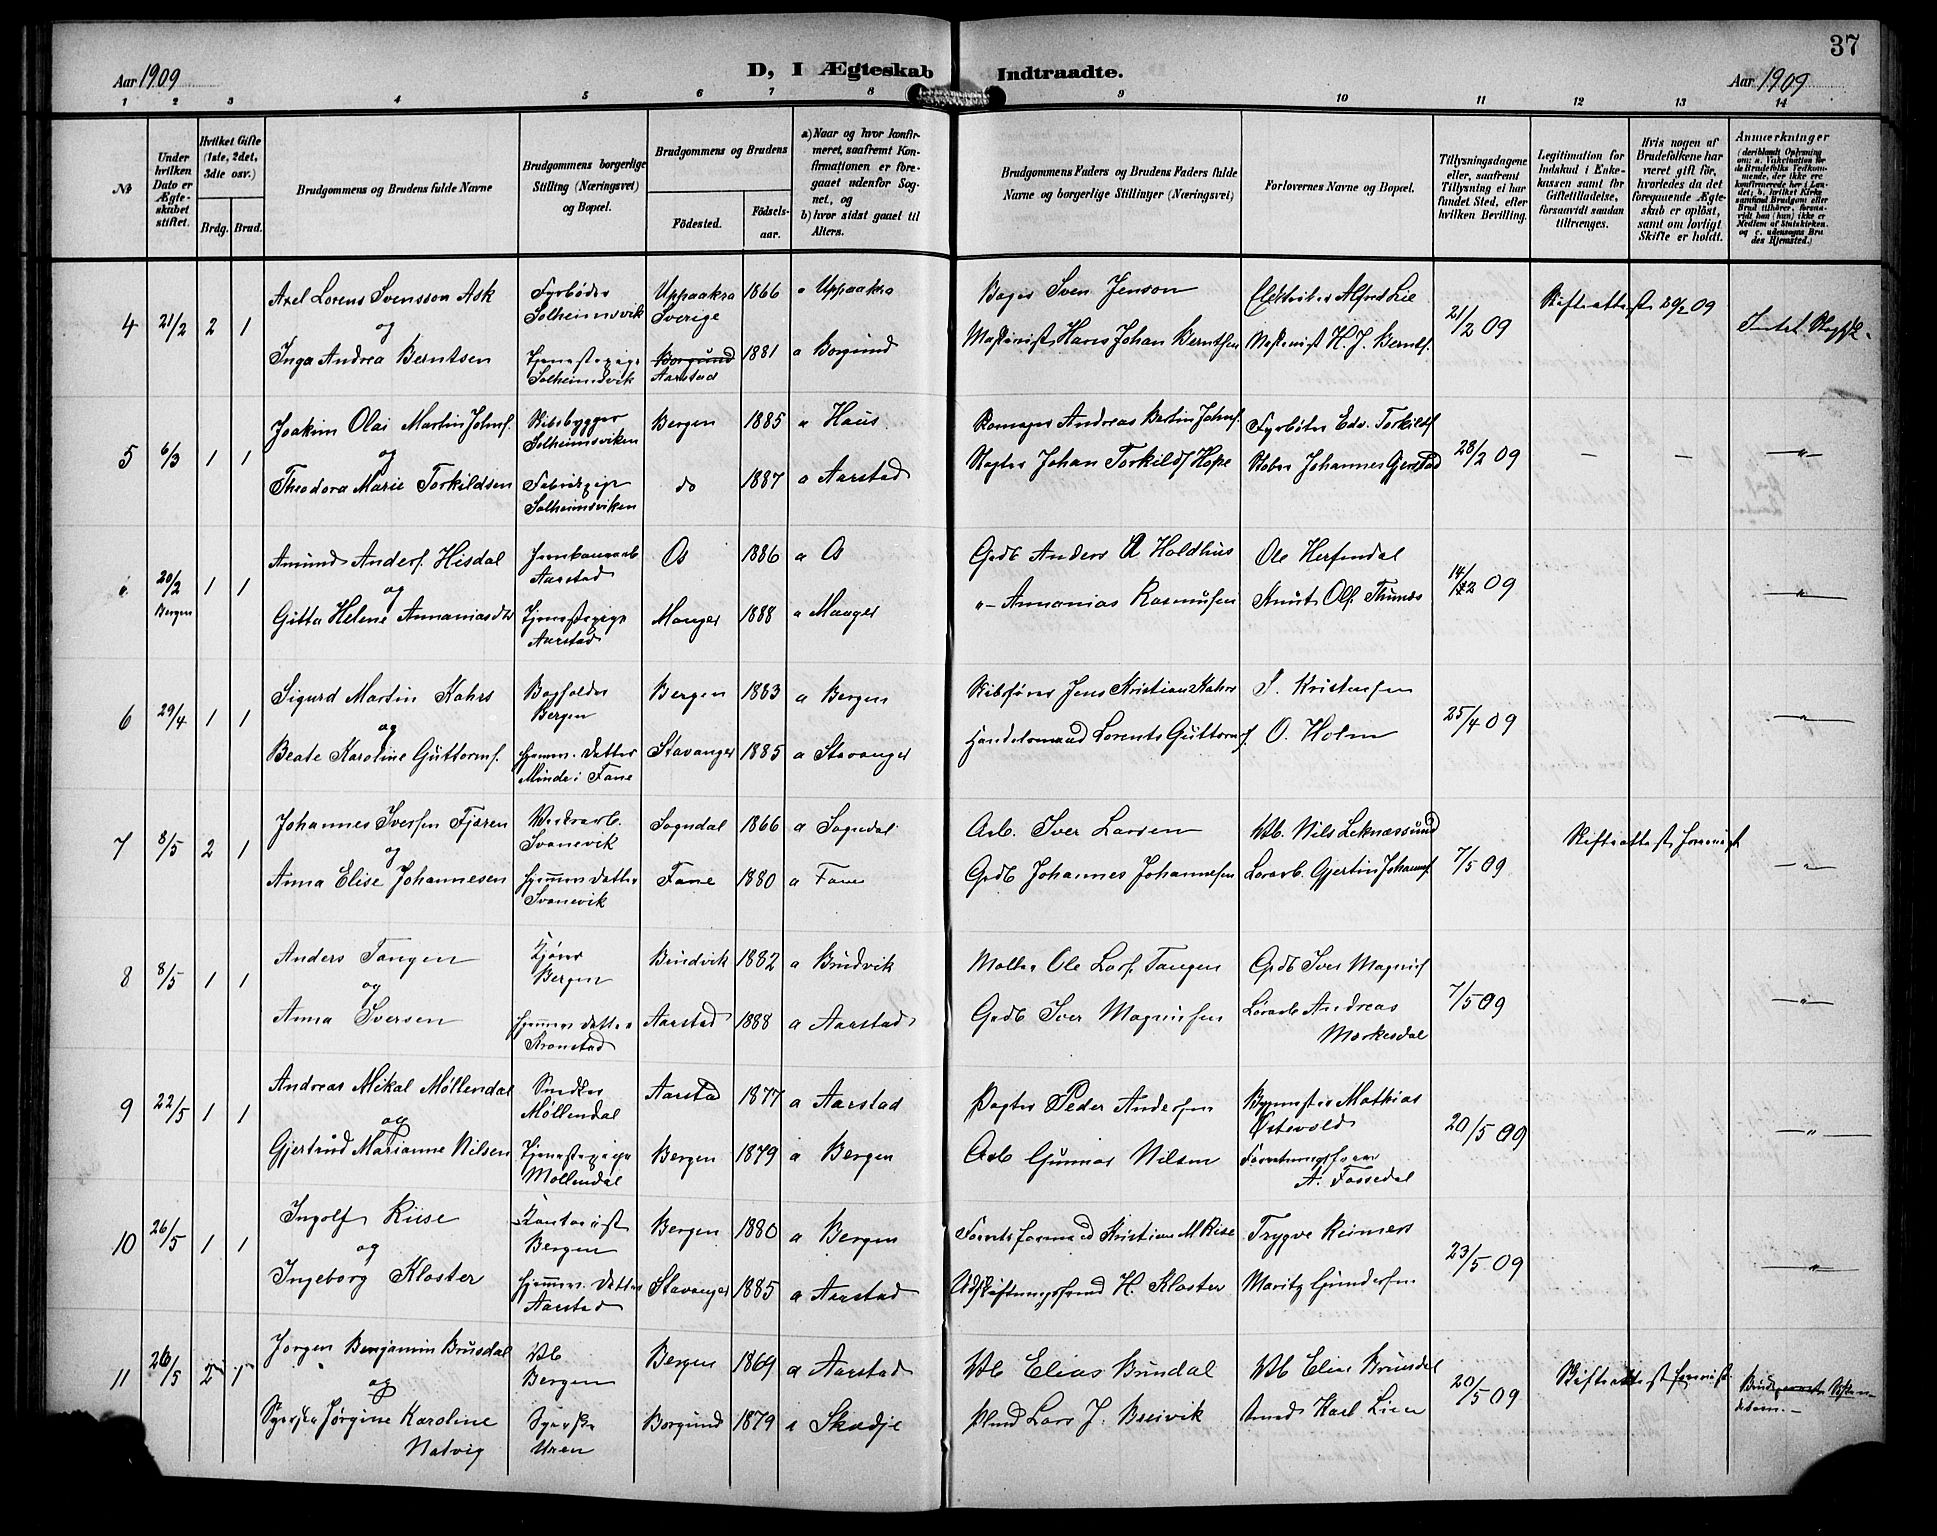 37
Aar 1909
D, I Ægteskab Indtraadte.
Aar 1909
1 2 3 4 5 6 7 8 9 10 11 12 13 14
№
Under hvilken Dato er Ægteskabet stiftet.
Hvilket Gifte (1ste, 2det, 3die osv.)
Brdg. Brud.
Brudgommens og Brudens fulde Navne
Brudgommens borgerlige Stilling (Næringsvei) og Bopæl.
Brudgommens og Brudens
Födested.
Födselsaar.
a) Naar og hvor konfirmeret, saafremt Konfirmationen er foregaaet udenfor Sognet, og
b) hvor sidst gaaet til Alters.
Brudgommens Faders og Brudens Faders fulde Navne og borgerlige Stillinger (Næringsvei)
Forlovernes Navne og Bopæl.
Tillysningsdagene eller, saafremt Tillysning ei har fundet Sted, efter hvilken Bevilling.
Legitimation for Indskud i Enkekassen samt for Giftetilladelse, forsaavidt saadan tiltrænges.
Hvis nogen af Brudefolkene har været gift för, hvorledes da det foregaaende Ægteskab er oplöst, samt om lovligt Skifte er holdt.
Anmærkninger
4 21/2 2 1
Axel Lorens Svensson Ask
og
Inga Andrea Berntsen
Fyrbøder
Solheimsvik
Tjenestepige
Solheimsvik
Uppaakra
Sverige
Borgund
Aarstad
1866
1881
a Uppaakra
a Borgund
Sven Jenson
Maskinist Hans Johan Berntsen
Alfred Lie
Maskinist H. J. Bernts.
21/2 09
Skifteattest 20/2 09
5 6/3 1 1
Joakim Olai Martin Johns.
og
Theodora Marie Torkildsen
Skibsbygger
Solheimsviken
Fabrikpige
Solheimsviken
Bergen
do
1885
1887
a Haus
a Aarstad
Andreas Bertin Johns.
Johan Torkilds Hope
Fyrbøter Edv. Torkilds
Johannes Gjerstad
28/2 09
– –
–"–
20/2
Bergen
1 1
Amund Anders. Hisdal
og
Gitta Helene Annaniasdtr
Aarstad
Tjenestepige
Aarstad
Os
Manger
1886
1888
a Os
a Manger
Grdb Anders A Holdhus
"– Annanias Rasmussen
Ole Herfindal
Knut Ols. Thunes
14/2 09
–"–
6 29/4 1 1
Sigurd Martin Kahrs
og
Beate Karoline Guttorms.
Bogholder
Bergen
Hjemmev. datter
Minde i Fane
Bergen
Stavanger
1883
1885
a Bergen
a Stavanger
Skibsfører Jens Kristian Kahrs
Handelsmand Lorents Guttorms.
S. Kristensen
O. Holm
25/4 09
–"–
7 8/5 2 1
Johannes Iversen Fjæren
og
Anna Elise Johannesen
Svanevik
Hjemmev. datter
Svanevik
Sogndal
Fane
1866
1880
a Sogndal
a Fane
Arb. Iver Larsen
Grdb Johannes Johannesen
Nils Leknessund
Gjertin Johanns.
7/5 09
Skifteattest forevist
–"–
8 8/5 1 1
Anders Tangen
og
Anna Iversen
Kjører
Bergen
Hjemmev datter
Kronstad
Brudvik
Aarstad
1882
1888
a Brudvik
a Aarstad
Møller Ole Lars. Tangen
Grdb Iver Magnussen
Grdb Iver Magnus
Andreas
Morkesdal
7/5 09
–"–
9 22/5 1 1
Andreas Mikal Møllendal
og
Gjertrud Marianne Nilsen
Snedker
Møllendal
Tjenestepige
Møllendal
Aarstad
Bergen
1877
1879
a Aarstad
a Bergen
Peder Andersen
Arb Gunnar Nilsen
Bygmester Mathias
Østevold
A. Fossedal
20/5 09
–"–
10 26/5 1 1
Ingolf Riise
og
Ingeborg Kloster
Kontorist
Bergen
Hjemmev. datter
Aarstad
Bergen
Stavanger
1880
1885
a Bergen
a Aarstad
Kristian M Riise
H. Kloster
Trygve Reimers
Moritz Gundersen
23/5 09
–"–
11 26/5 2 1
Jørgen Benjamin Brusdal
og
Syerske Jørgine Karoline
Natvig
Bergen
Syerske
Uren
Bergen
Borgund
1869
1879
a Aarstad
a Skodje
Elias Brusdal
Lars J. Breivik
Elias Brusdal
Smed Karl Lien
20/5 09
Skifteattest forevist